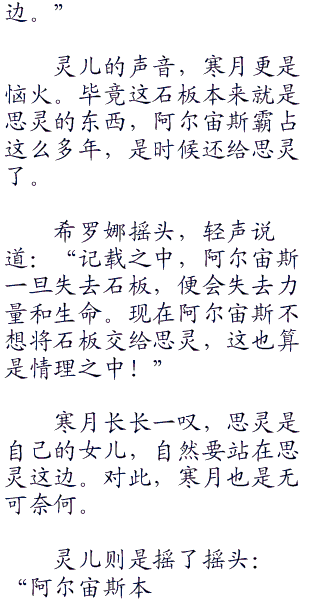 边。”
灵儿的声音，寒月更是
恼火。毕竟这石板本来就是
思灵的东西，阿尔宙斯霸占
这么多年，是时候还给思灵
了。
希罗娜摇头，轻声说
道：“记载之中，阿尔宙斯
一旦失去石板，便会失去力
量和生命。现在阿尔宙斯不
想将石板交给思灵，这也算
是情理之中！”
寒月长长一叹，思灵是
自己的女儿，自然要站在思
灵这边。对此，寒月也是无
可奈何。
灵儿则是摇了摇头：
“阿尔宙斯本